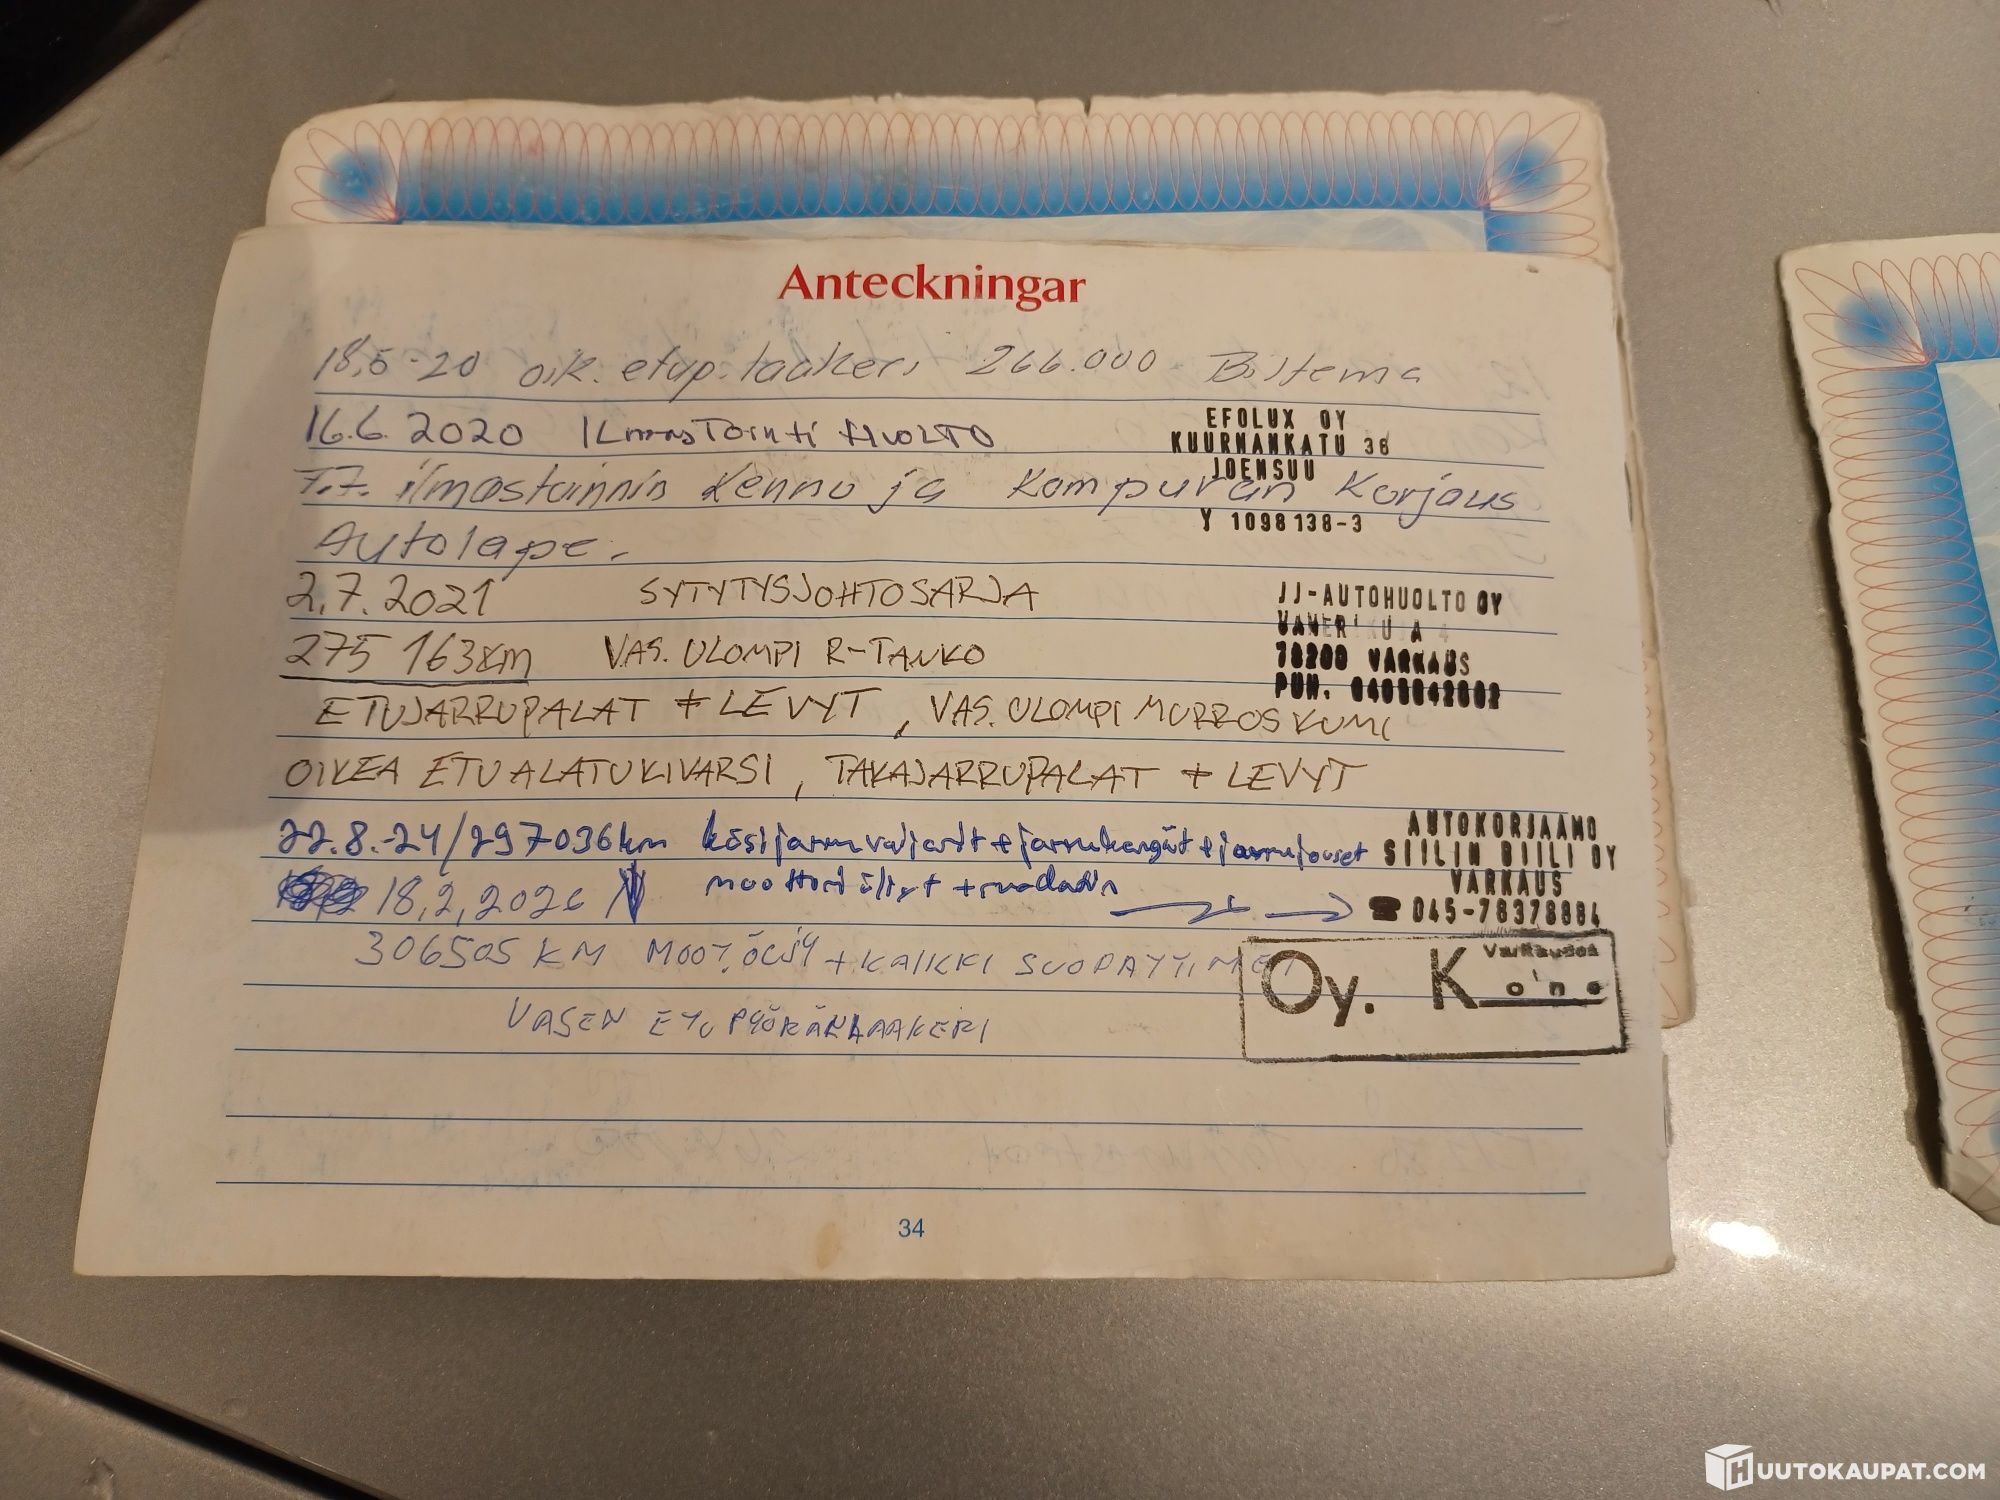 Anteckningar
18,5-20 oik. etup. laakeri 266.000 Biltema
16.6.2020 ILmasTointi HUOLTO
EFOLUX OY
KUURNANKATU 36
JOENSUU
Y 1098138-3
7.7. ilmastoinnin Kenno ja Kompuran Korjaus
Autolape.
2.7.2021 SYTYTYSJOHTOSARJA
275 163km VAS. ULOMPI R-TANKO
JJ-AUTOHUOLTO OY
78200 VARKAUS
PUH.
ETUJARRUPALAT + LEVYT, VAS. ULOMPI MURROSKUMI
OIKEA ETUALATUKIVARSI, TAKAJARRUPALAT + LEVYT
22.8.-24/297036km käsijarruvaijerit + jarrukengät + jarrujouset
moottoriöljyt + suodatin
AUTOKORJAAMO
SIILIN BIILI OY
VARKAUS
☎ 045-78378884
18,2,2026
306505 KM MOOT.ÖLJY + KAIKKI SUODATTIMET
VASEN ETUPYÖRÄNLAAKERI
Varkauden
Oy. Kone
34
HUUTOKAUPAT.COM